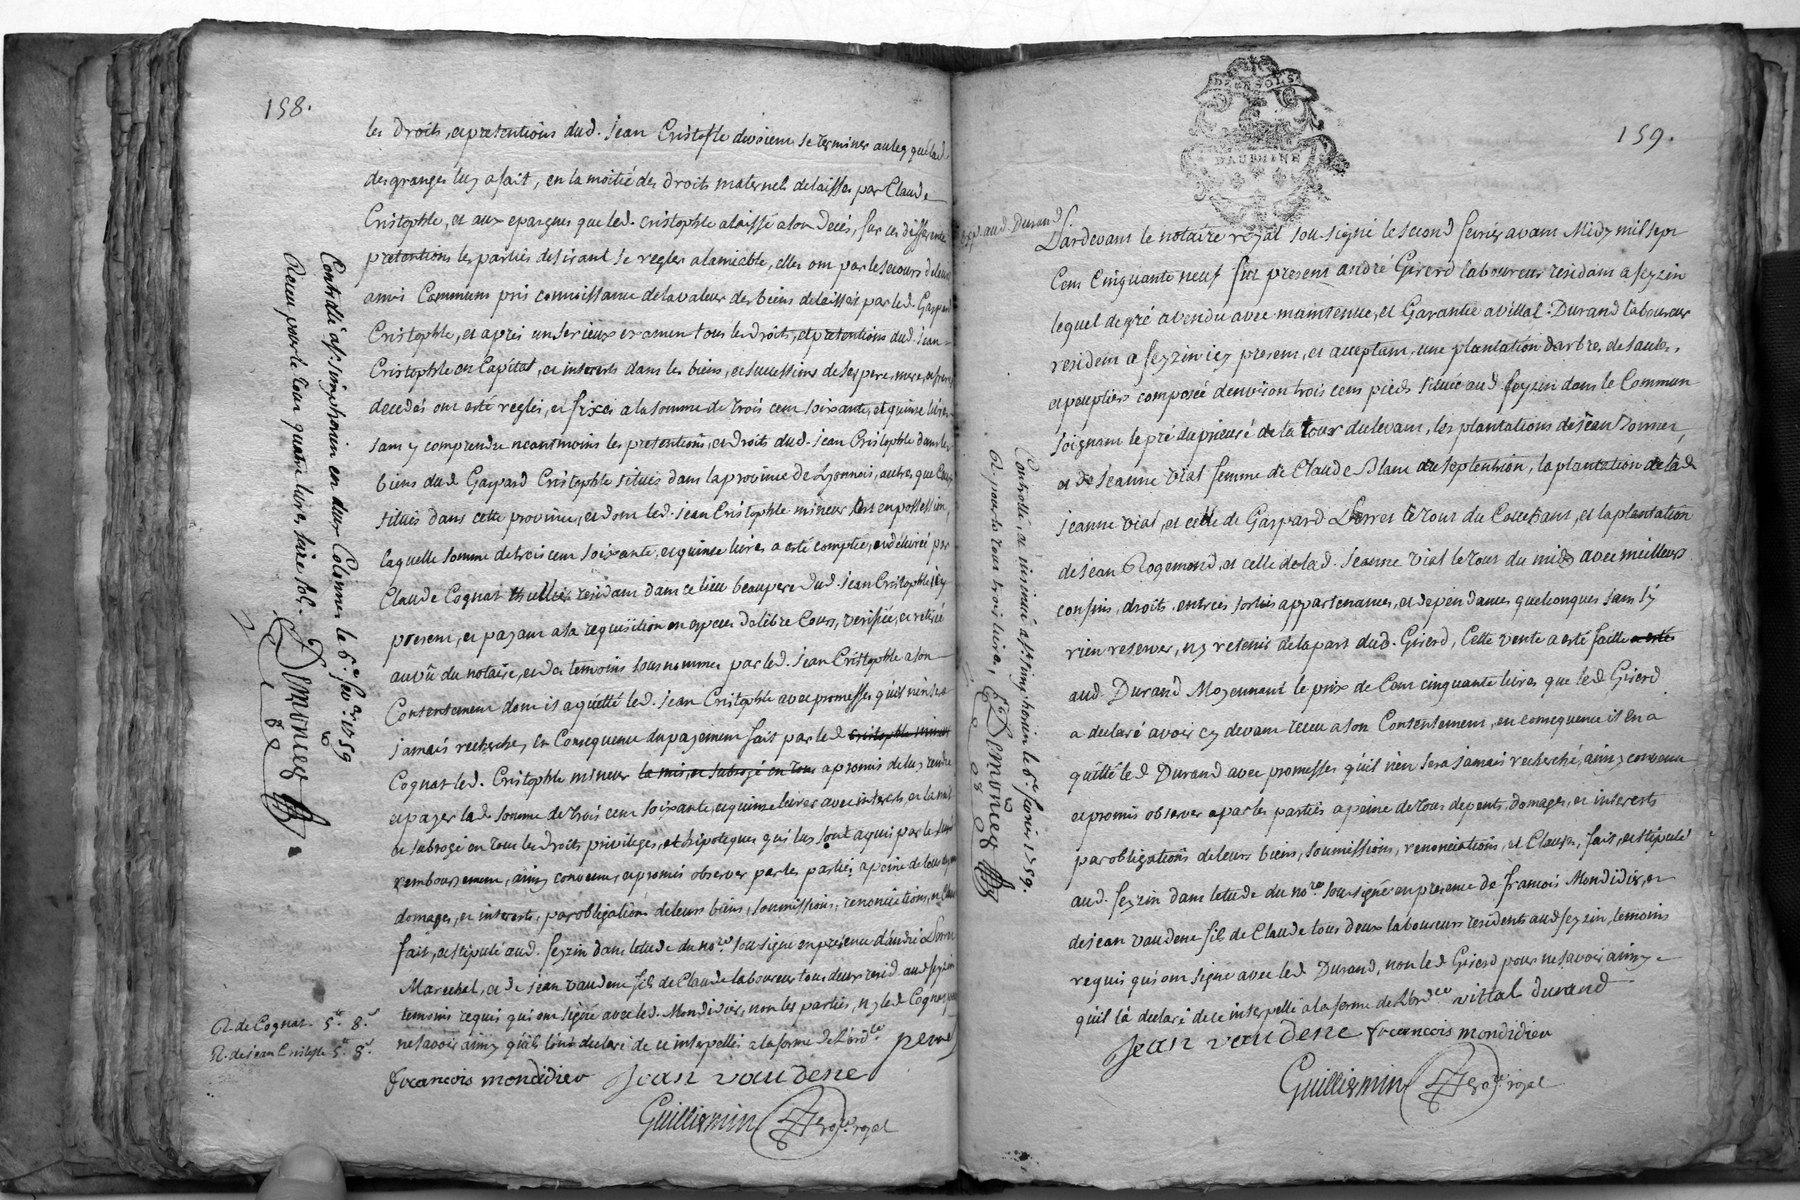 158.
les droits, et pretentions dud. jean Cristofle devoient se terminer au leg que lad.
des granges luy a fait, en la moitié des droits maternels delaissés par Claude
Cristophle, et aux epargnes que led. cristophle a laissé a son decès, sur ces differentes
pretentions les parties desirant se regler a lamiable, elles ont par le secours de leurs
amis Communs pris connoissance de la valeur des biens delaissés par led. Gaspard
Cristophle, et après un serieux examen tous les droits, et pretentions dud. jean
Cristophle en Capital, et interests dans les biens, et successions de ses pere, mere, et freres
decedés ont esté reglés, et fixés a la somme de trois cent soixante, et quinze livres
sans y comprendre neantmoins les pretentions, et droits dud. jean Cristophle dans les
biens dud. Gaspard Cristophle situés dans la province de Lyonnois, autres que Ceux
situés dans cette province, et dont led. jean Cristophle mineur est en possession,
laquelle somme de trois cent soixante, et quinze livres a esté comptée, et delivrée par
Claude Cognat thuillier residant dans ce lieu beaupere dud. jean Cristophle icy
present, et payant a la requisition en especes de libre Cours, verifiée, et retirée
au vû du notaire, et des temoins sous nommés par led. jean Cristophle a son
Consentement dont il a quitté led. jean Cristophle avec promesses qu'il n'en sera
jamais recherché, En Consequence du payement fait par led. cristophle mineur
Cognat led. Cristophle mineur la mis, et subrogé en tous a promis de luy rendre
et payer lad. somme de trois cent soixante, et quinze livres avec interests, et la mis
et subrogé en tous les droits privileges, et hipoteques qui luy sont acquis par le susd.
remboursement, ainsy convenu, et promis observer par les parties a peine de tous depens
domages, et interests, par obligations de leurs biens, soumissions, renonciations, et clauses
fait, et stipulé aud. feyzin dans letude du nore. sousigné en presence d'andré
Marechal, et de jean vaudene fils de Claude laboureur tous deux resid. aud. feyzin
temoins requis qui ont signé avec led. Mondidier, non les parties, ny led. Cognat pour
ne savoir ainsy qu'ils l'ont declaré de ce interpellés a la forme de Lord.ce
francois mondidier Jean vaudene
Guilliermin no.re royal
Controllé a s.t simphorien en deux Colonnes le 6.e fev.er 1759
Recu pour le tout quatre livres, seize sols.
Demonies
R. de Cognat 5 8
R. de jean Cristofle 5 8
D'EUX SOLS
DAUPHINE
159.
exp. aud. Durand
Pardevant le notaire royal sousigné le second fevrier avant Midy mil sept
Cent Cinquante neuf fut present andré Girerd laboureur residant a feyzin
lequel de gré a vendu avec maintenue, et Garantie a vital Durand laboureur
resident a feyzin icy present, et acceptant, une plantation darbres de saules,
et peupliers composée denviron trois cent pieds située aud. feyzin dans le Commun
joignant le pré du prieuré de la tour du levant, les plantations de jean Donier,
et de Jeanne vial femme de Claude Blanc du septentrion, la plantation de lad.
jeanne vial, et celle de Gaspard le tout du Couchant, et la plantation
de jean Rogemond, et celle de lad. Jeanne vial le tout du midy avec meilleurs
confins, droits, entrées sorties appartenances, et dependances quelconques sans sy
rien reserver, ny retenir de la part dud. Girerd, Cette vente a esté faitte a esté
aud. Durand Moyennant le prix de Cent cinquante livres que led. Girerd
a declaré avoir cy devant receu a son Consentement, en consequence il en a
quitté led. Durand avec promesses qu'il n'en sera jamais recherché, ainsy convenu
et promis observer par les parties a peine de tous depents, domages, et interests
par obligations de leurs biens, soumissions, renonciations, et Clauses, fait, et stipulé
aud. feyzin dans letude du no.re sousigné en presence de francois Mondidier, et
de jean vaudene fils de Claude tous deux laboureurs residents aud. feyzin, temoins
requis qui ont signé avec led. Durand, non led. Girerd pour ne savoir ainsy
qu'il la declaré de ce interpellé a la forme de Lord.ce vittal durand
Jean vaudene francois mondidier
Guilliermin no.re royal
Controllé, et insinué a s.t simphorien le 6.e fevrier 1759.
R. pour le tout trois livres,
Demonies